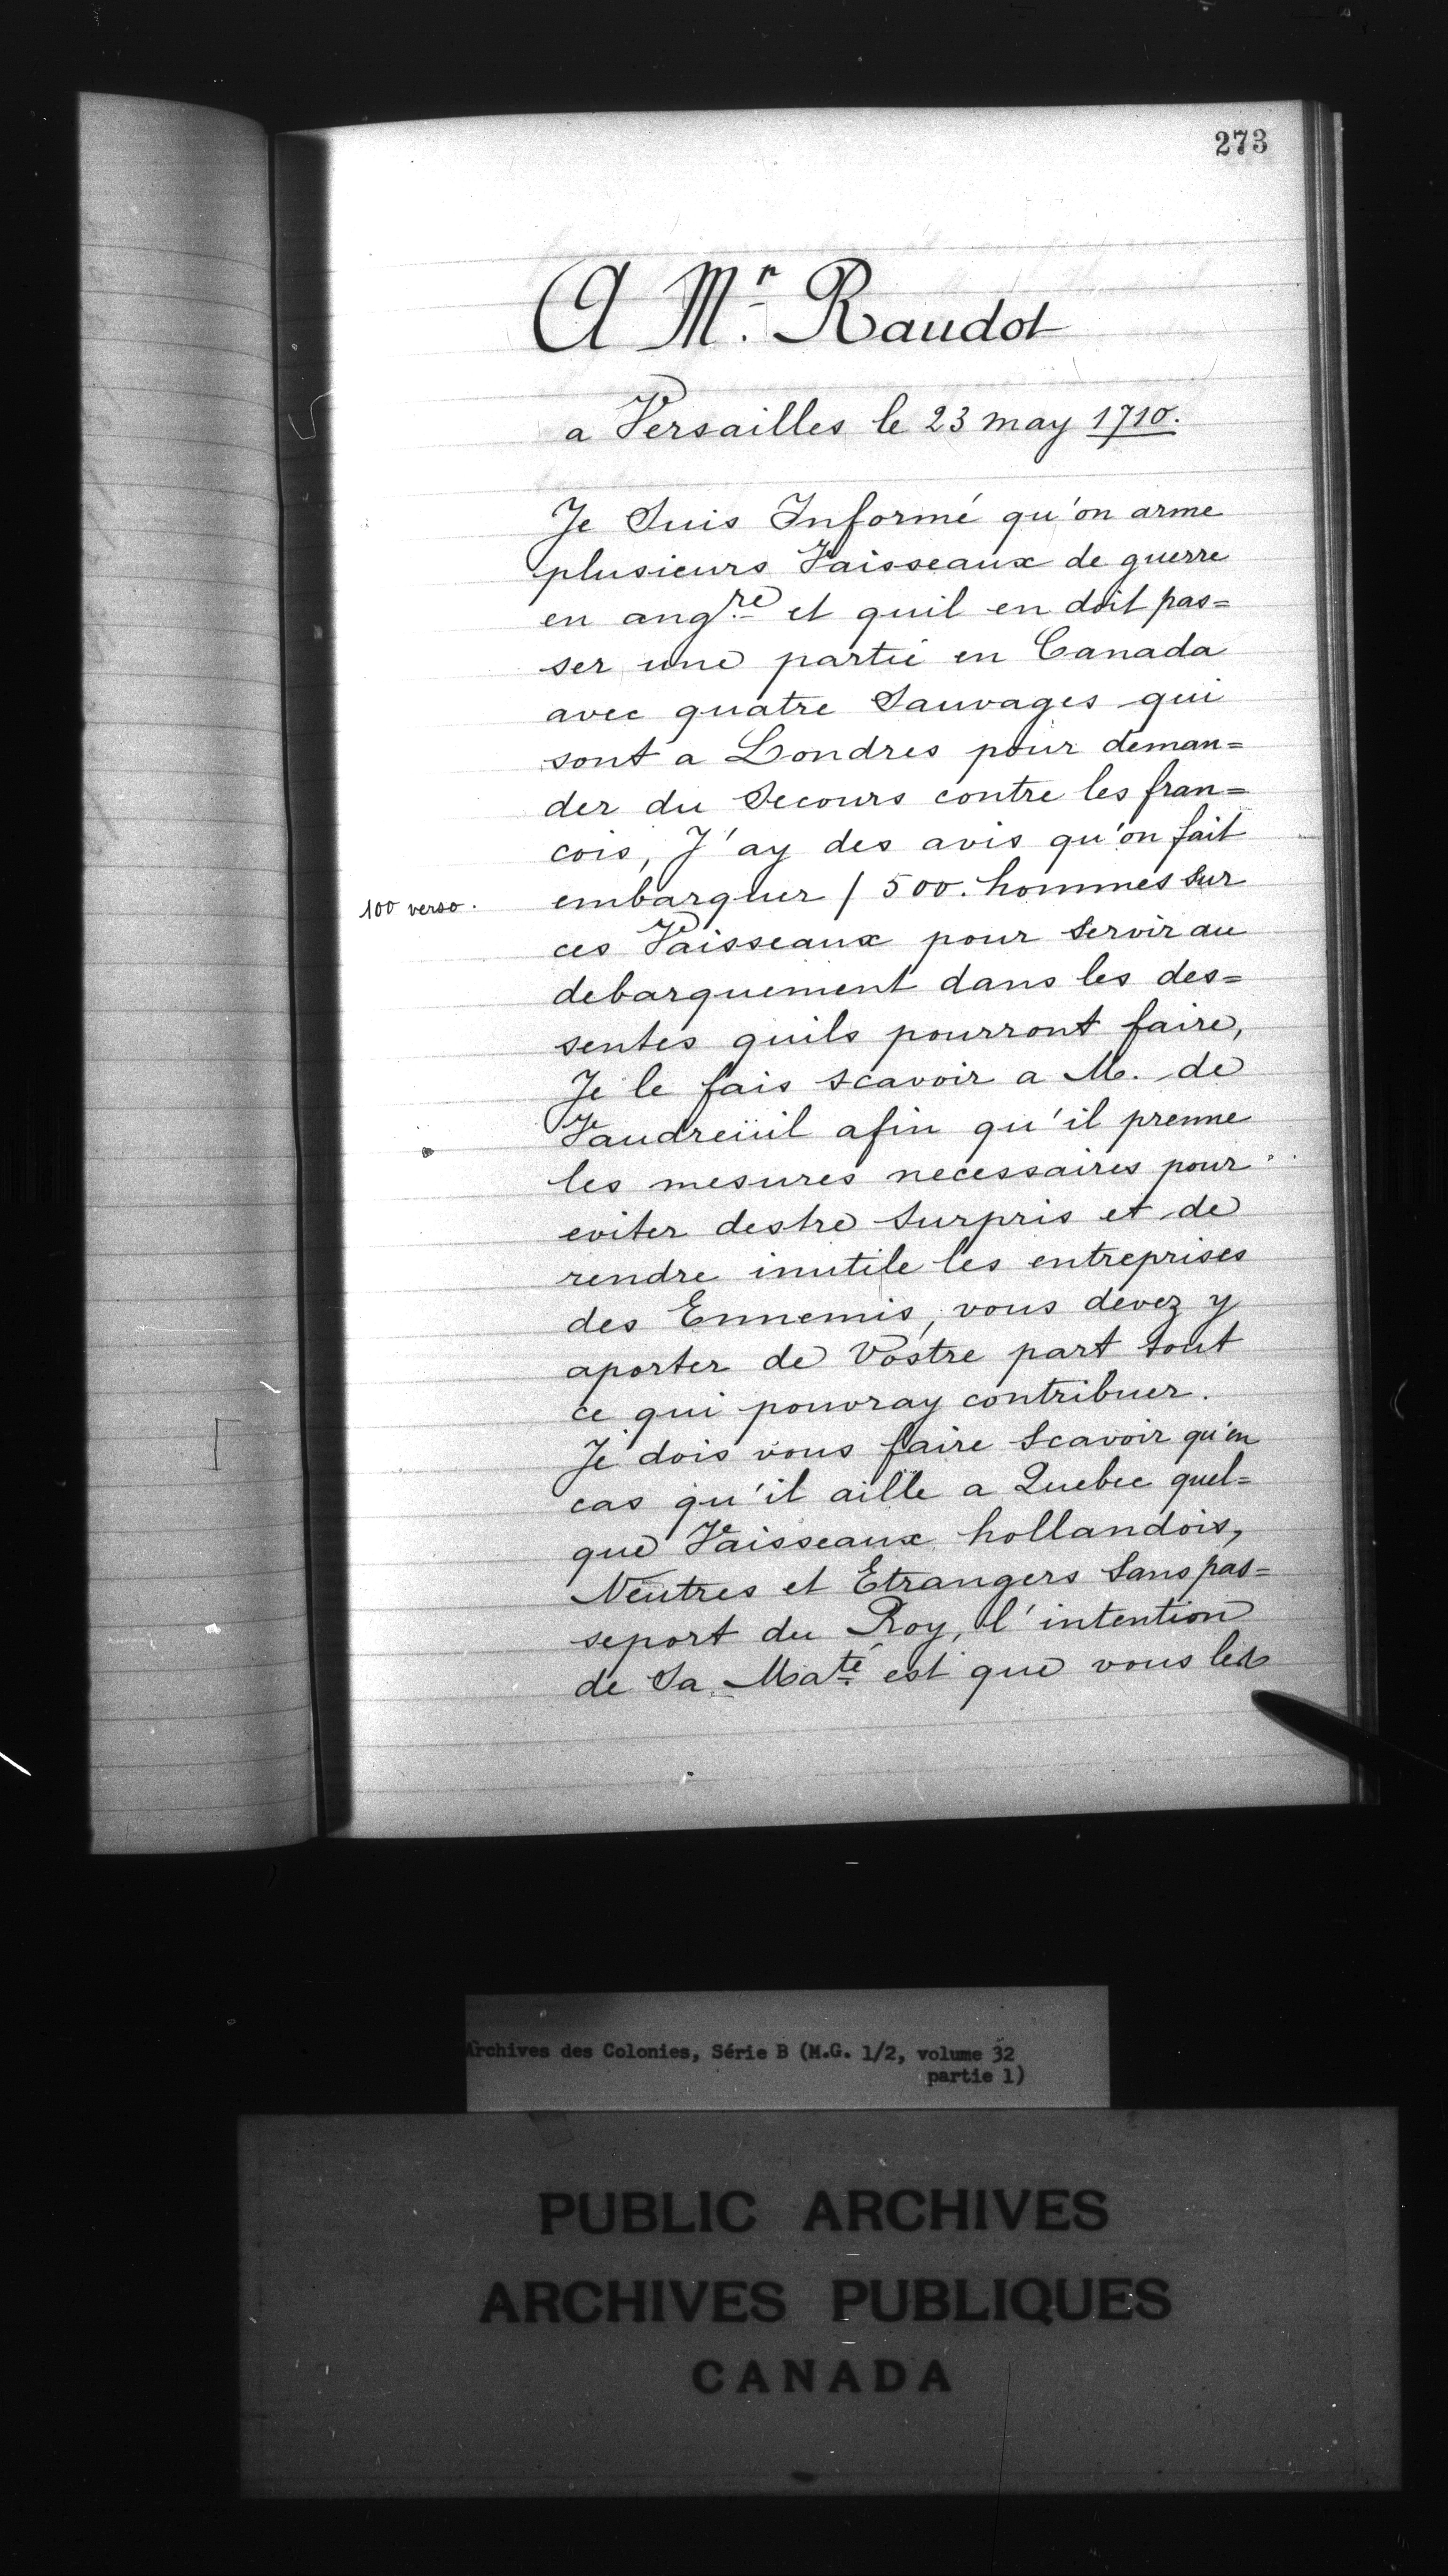 273
A Mr. Raudot
a Versailles le 23 may 1710.
Je Suis Informé qu'on arme
plusieurs Vaisseaux de guerre
en angre et quil en doit pas=
ser une partie en Canada
avec quatre Sauvages qui
sont a Londres pour deman=
der du Secours contre les fran=
cois, J'ay des avis qu'on fait
100 verso. embarquer / 500. hommes Sur
ces Vaisseaux pour Servir au
debarquement dans les des=
sentes quils pourront faire,
Je le fais scavoir a M. de
Vaudreüil afin qu'il prenne
les mesures necessaires pour
eviter destre Surpris et de
rendre inutile les entreprises
des Ennemis, vous devez y
aporter de Vostre part tout
ce qui pouvray contribuer.
Je dois vous faire Scavoir qu'en
cas qu'il aille a Quebec quel=
que Vaisseaux hollandois,
Neutres et Etrangers Sans pas=
seport du Roy, l'intention
de Sa Maté est que vous les
Archives des Colonies, Série B (M.G. 1/2, volume 32
partie 1)
PUBLIC ARCHIVES
ARCHIVES PUBLIQUES
CANADA